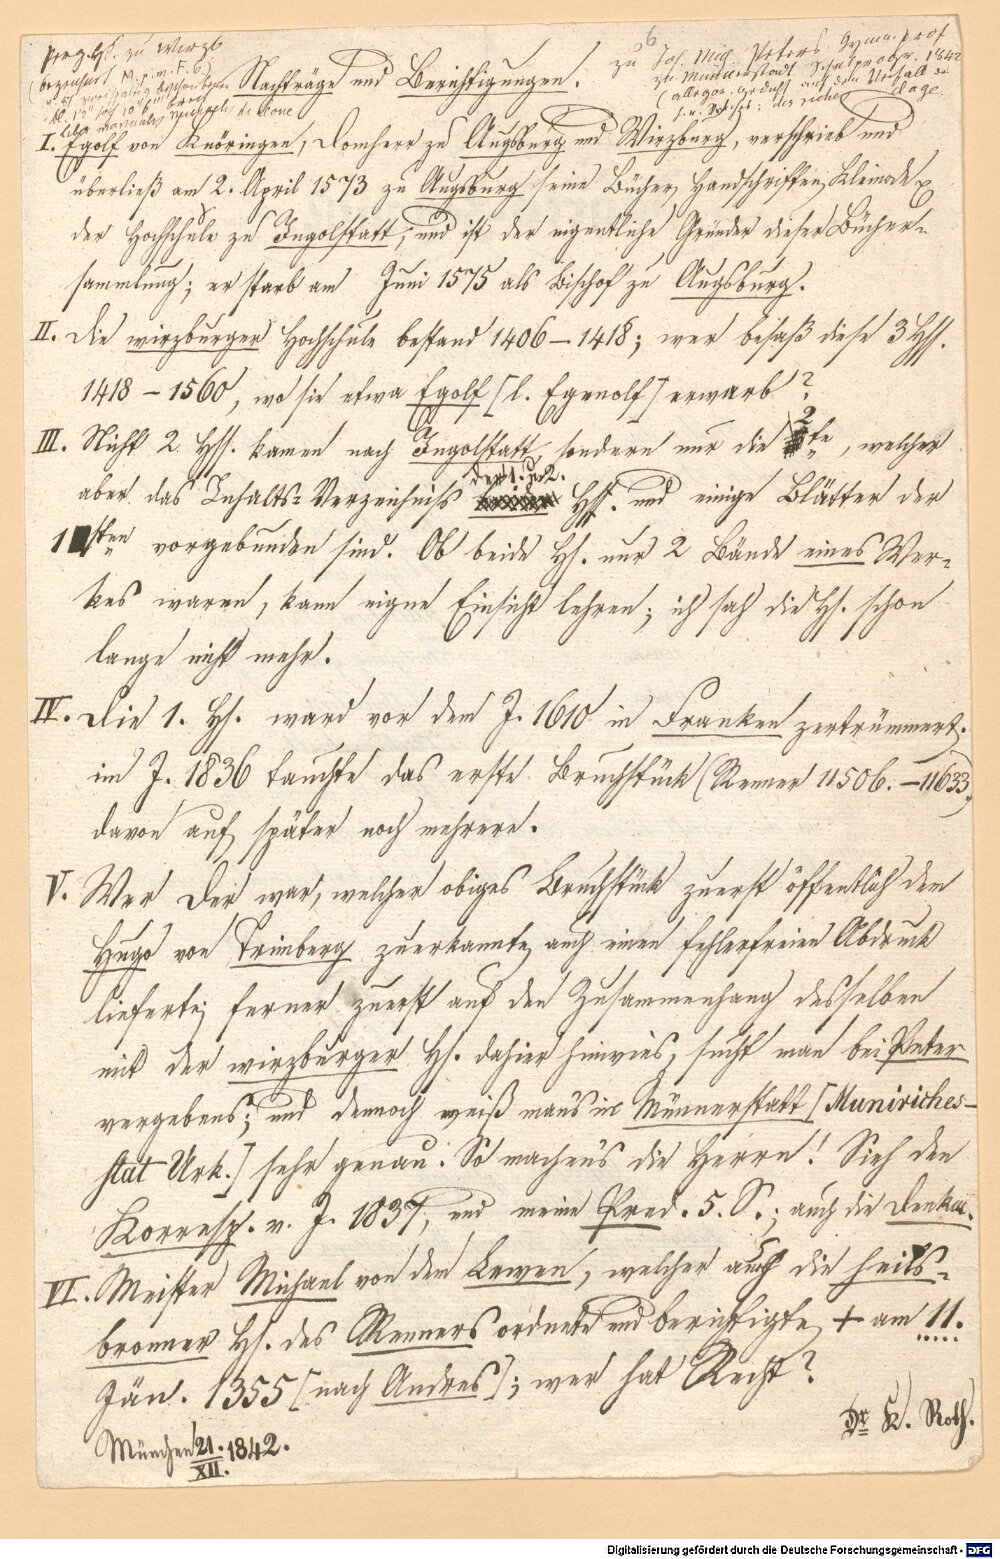 Perg. Hs. zu Wirzb.
(bezeichnet M. p. m. F. 6)
6
zu Joh. Mich. Peters Gymn. prof.
zu Münnerstadt Schulprogr. 1842
(allegor. Gedicht auf den Verfall
Nachträge und Berichtigungen.
I. Egolf von Knöringen, Domherr zu Augsburg und Wirzburg, verschrieb und
überließ am 2. April 1573 zu Augsburg seine Bücher, Handschriften, Kleinode
der Hochschule zu Ingolstatt, und ist der eigentliche Gründer dieser Bücher-
sammlung; er starb am Juni 1575 als Bischof zu Augsburg.
II. Die wirzburger Hochschule bestand 1406–1418; wer besaß diese 3 Hss.
1418–1560, wo sie etwa Egolf [l. Egenolf] erwarb?
III. Nicht 2 Hss. kamen nach Ingolstatt, sondern nur die 2te, welcher
aber das Inhalts-Verzeichniss der 1. u. 2. Hs. und einige Blätter der
1sten vorgebunden sind. Ob beide Hs. nur 2 Bände eines Wer-
kes waren, kann eigne Einsicht lehren; ich sah die Hs. schon
lange nicht mehr.
IV. Die 1. Hs. ward vor dem J. 1610 in Franken zertrümmert.
im J. 1836 tauchte das erste Bruchstück (Renner 11506.–11633)
davon auf, später noch mehrere.
V. Wer der war, welcher obiges Bruchstück zuerst öffentlich dem
Hugo von Trimberg zuerkannte, auch einen fehlerfreien Abdruck
lieferte; ferner zuerst auf den Zusammenhang desselben
mit der wirzburger Hs. dahier hinwies, sucht man bei Peter
vergebens; und dennoch weiß man's in Münnerstatt [Muniriches-
stat Urk.] sehr genau. So machen's die Herrn! Sieh den
Korresp. v. J. 1837, und meine Pred. S. 5.; auch die Denkm.
VI. Meister Michael von dem Lewen, welcher auch die heils-
bronner Hs. des Renners ordnete und berichtigte, + am 11.
Jän. 1355 [nach Andres]; wer hat Recht?
Dr K. Roth.
München 21./XII. 1842.
Digitalisierung gefördert durch die Deutsche Forschungsgemeinschaft - DFG